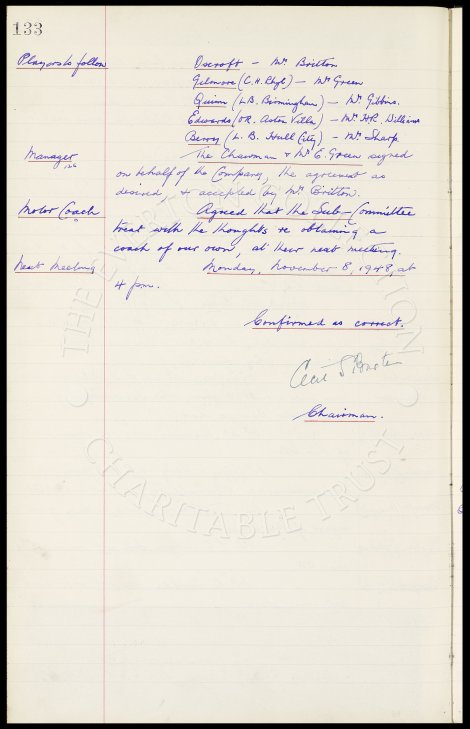 133
Players to follow Oscroft - Mr. Britton
Gilmore (C.H. Rhyl) - Mr Green
Quinn (L.B. Birmingham) - Mr. Gibbins.
Edwards (O.R. Aston Villa) - Mr. H.R. Williams
Berry (L.B. Hull City) - Mr. Sharp.
Manager The Chairman & Mr E. Green signed
126
on behalf of the Company, the agreement as
desired, & accepted by Mr. Britton.
Motor Coach Agreed that the Sub-Committee
treat with the thoughts re obtaining a
coach of our own, at their next meeting.
Next Meeting Monday, November 8, 1948, at
4 pm.
Confirmed as correct.
Cecil S Baxter
Chairman.
THE EVERTON COLLECTION
CHARITABLE TRUST